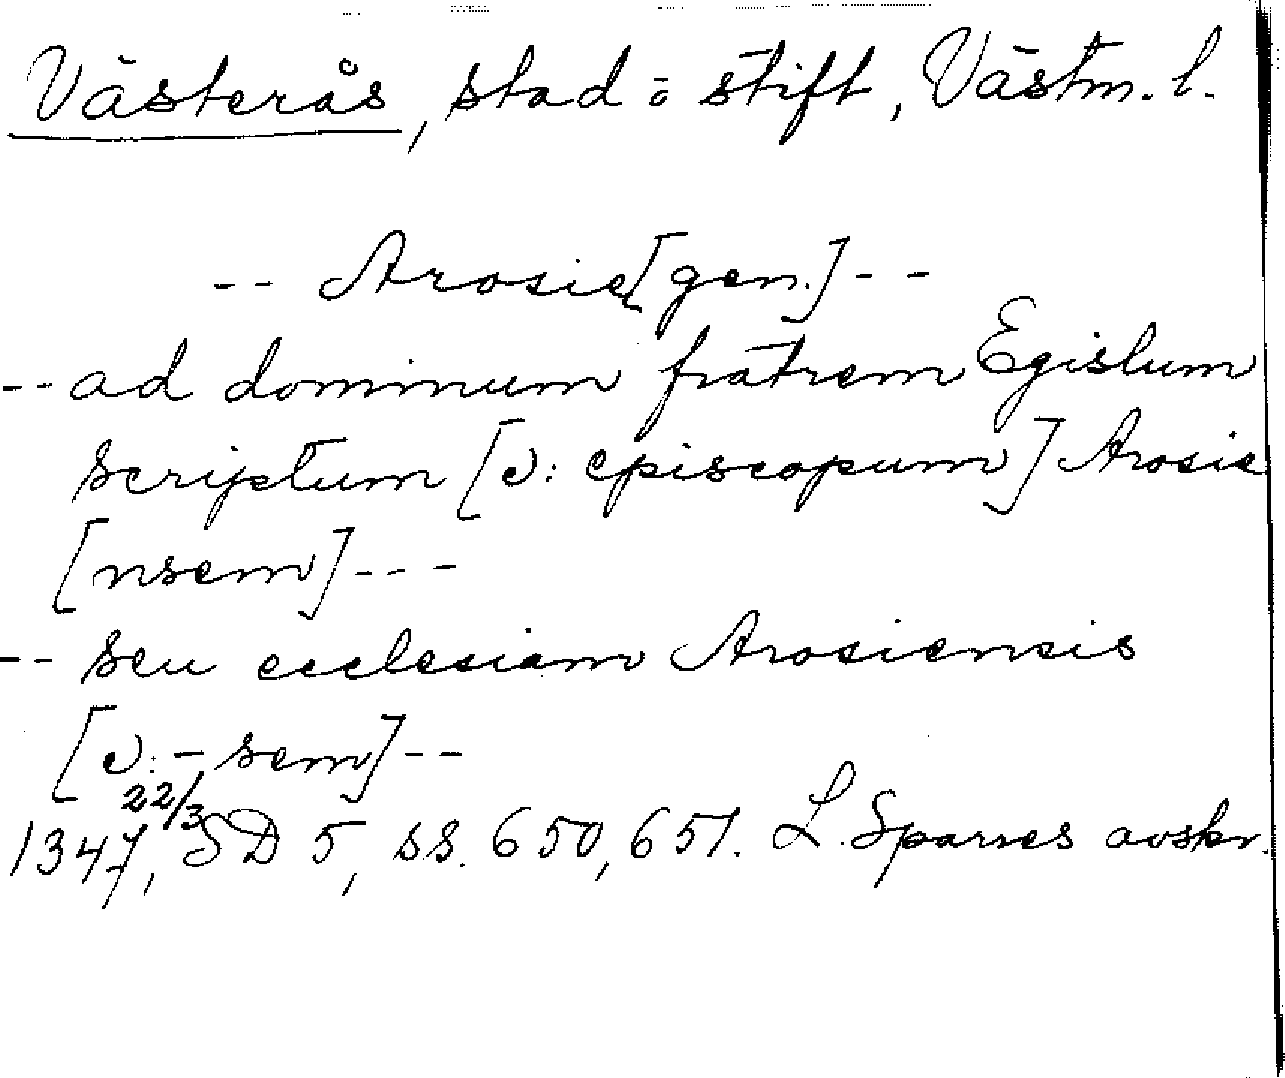 Västerås, stad o stift, Västm. l.
-- Arosie [gen.] --
-- ad dominum fratrem Egislum
scriptum [ɔ: episcopum] Arosie
[nsem] ---
-- seu ecclesiam Arosiensis
[ɔ: -sem] --
1347 22/3, SD 5, ss. 650, 651. L. Sparres avskr.